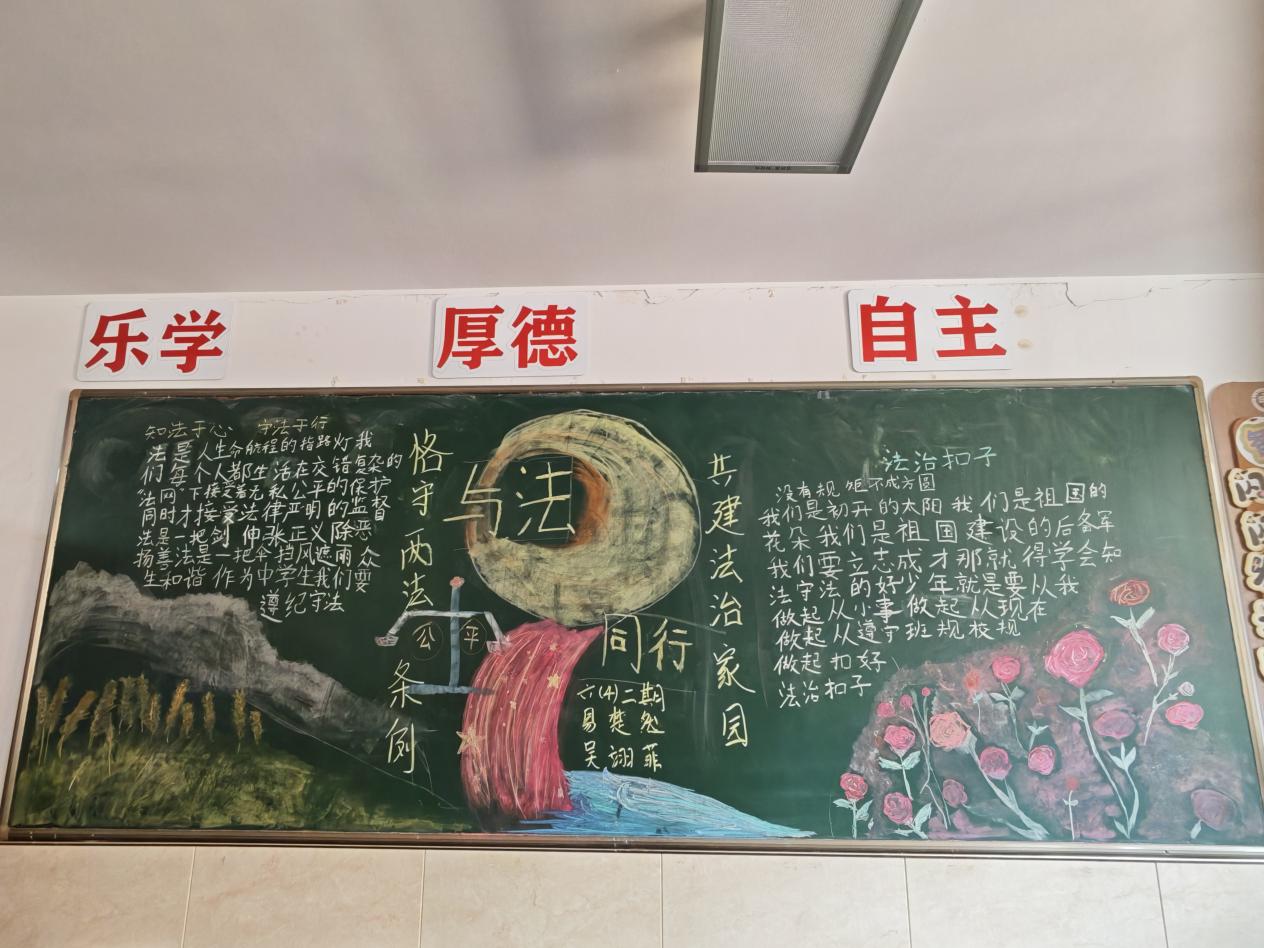 乐学
厚德
自主
知法于心 守法于行
法是人生命航程的指路灯我
们每个人都生活在交错复杂的
法网下接受着无私公平的保护
同时才接受法律严明的监督
法是一把剑伸张正义除恶
扬善法是一把伞挡风遮雨众
生和谐作为中学生我们要
遵纪守法
恪守两法条例
与法
同行
公平
六(4)二期
易楚
吴翊菲
共建法治家园
法治扣子
没有规矩不成方圆
我们是初升的太阳我们是祖国的
花朵我们是祖国建设的后备军
我们要立志成才那就得学会知
法守法的好少年就是要从我
做起从小事做起从现在
做起从遵守班规校规
做起扣好
法治扣子